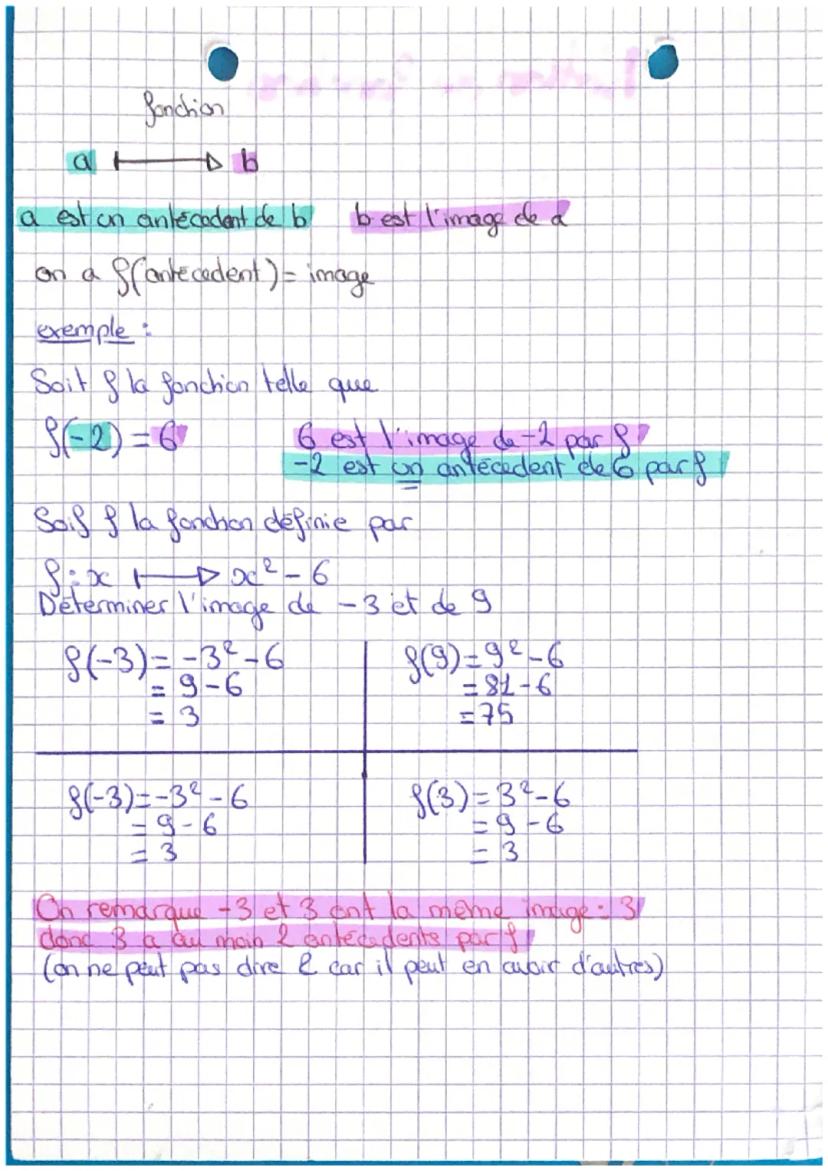 fonction
a ⟼ b
a est un antécedent de b b est l'image de a
on a f(antecedent) = image
exemple :
Soit f la fonction telle que
f(-2) = 6 6 est l'image de -2 par f
-2 est un antécedent de 6 par f
Soit f la fonction définie par
f : x ⟼ x² - 6
Déterminer l'image de -3 et de 9
f(-3) = -3² - 6
= 9 - 6
= 3
f(9) = 9² - 6
= 81 - 6
= 75
f(-3) = -3² - 6
= 9 - 6
= 3
f(3) = 3² - 6
= 9 - 6
= 3
On remarque -3 et 3 ont la même image : 3
donc 3 a au moin 2 antécedents par f
(on ne peut pas dire 2 car il peut en avoir d'autres)